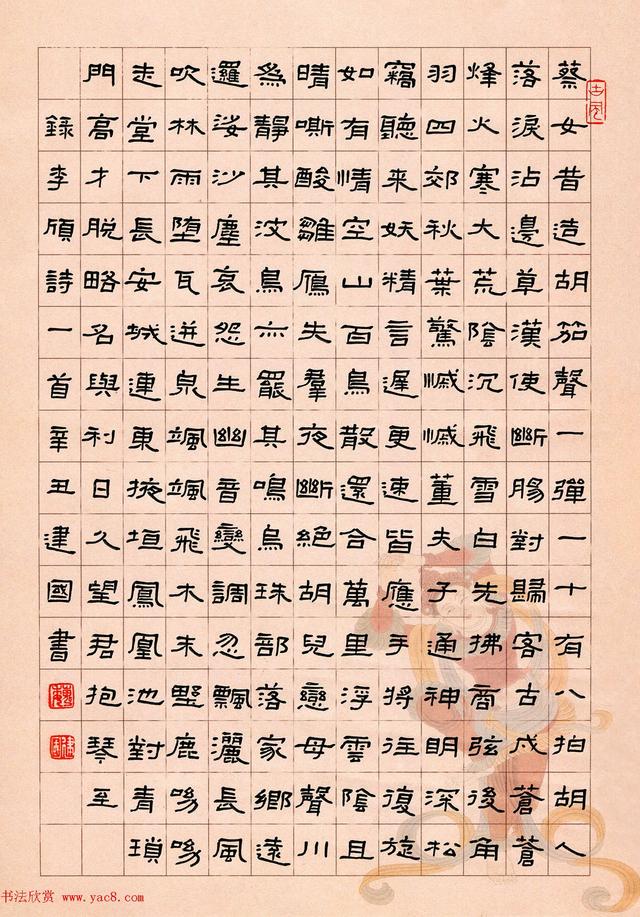 蔡女昔造胡笳聲一彈一十有八拍胡人
落淚沾邊草漢使斷腸對歸客古戍蒼蒼
烽火寒大荒陰沉飛雪白先拂商弦後角
羽四郊秋葉驚慽慽董夫子通神明深松
竊聽來妖精言遲更速皆應手將往復旋
如有情空山百鳥散還合萬里浮雲陰且
晴嘶酸雛鴈失羣夜斷絕胡兒戀母聲川
為靜其波鳥亦罷其鳴烏珠部落家鄉遠
邏娑沙塵哀怨生幽音變調忽飄灑長風
吹林雨堕瓦迸泉颯颯飛木末野鹿呦呦
走堂下長安城連東掖垣鳳凰池對青瑣
門高才脫略名與利日夕望君抱琴至
錄李頎詩一首辛丑建國書
书法欣赏 www.yac8.com